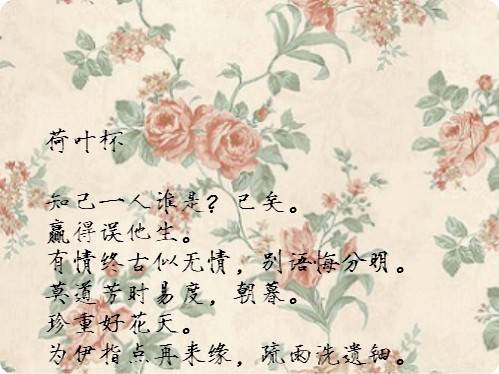 荷叶杯
知己一人谁是？已矣。
赢得误他生。
有情终古似无情，别语悔分明。
莫道芳时易度，朝暮。
珍重好花天。
为伊指点再来缘，疏雨洗遗钿。